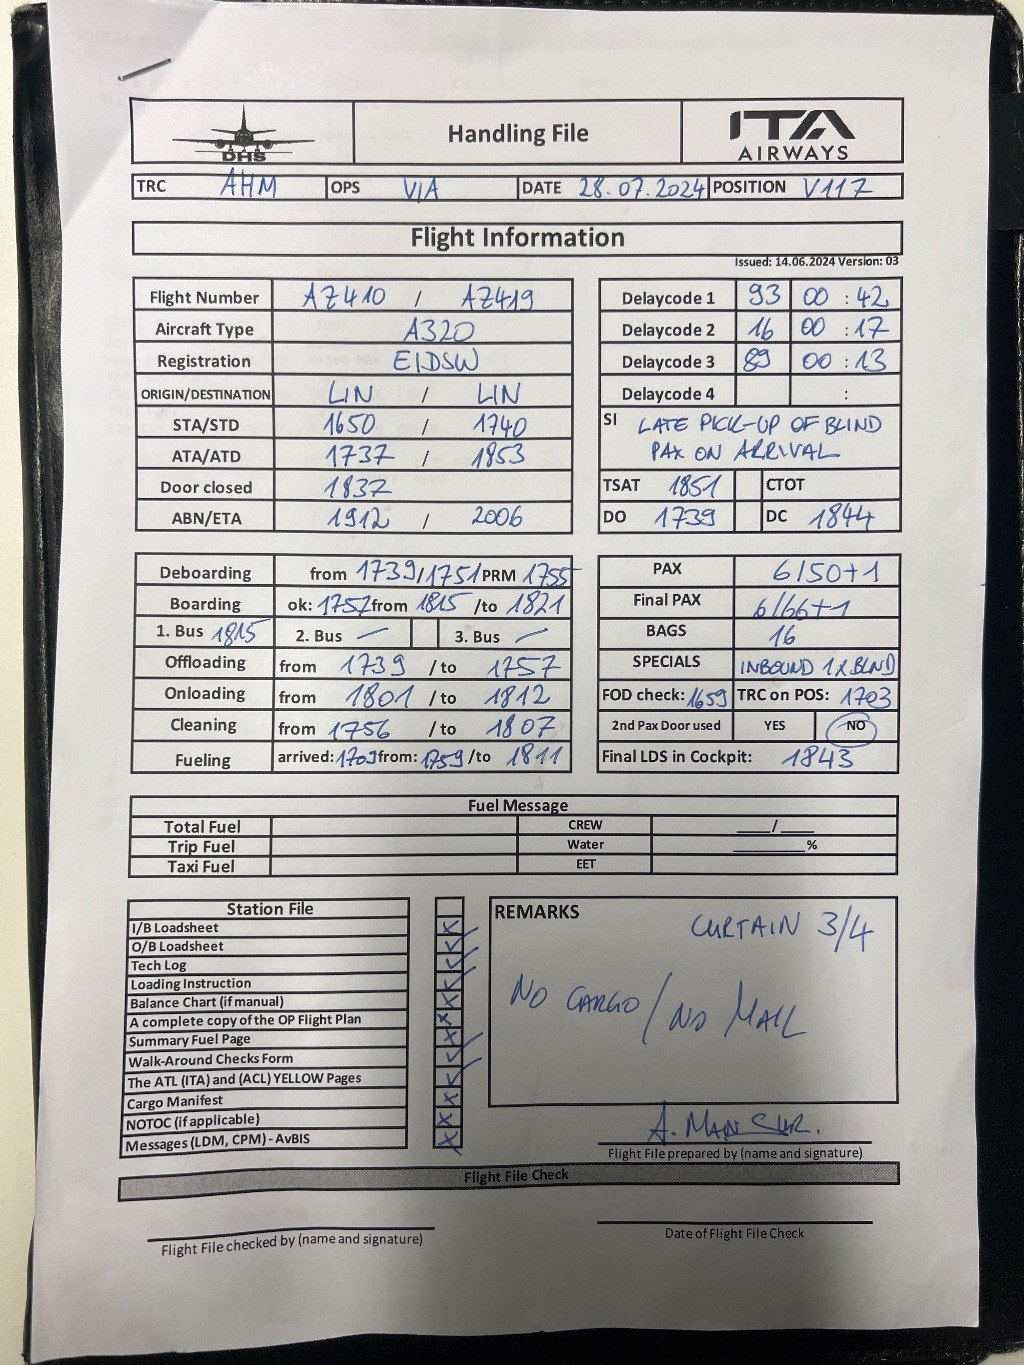 DHS
Handling File
ITA
AIRWAYS
TRC AHM OPS VIA DATE 28.07.2024 POSITION V117
Flight Information
Issued: 14.06.2024 Version: 03
Flight Number AZ410 / AZ419
Aircraft Type A320
Registration EIDSW
ORIGIN/DESTINATION LIN / LIN
STA/STD 1650 / 1740
ATA/ATD 1737 / 1853
Door closed 1837
ABN/ETA 1912 / 2006
Delaycode 1 93 00 : 42
Delaycode 2 16 00 : 17
Delaycode 3 89 00 : 13
Delaycode 4 :
SI LATE PICK-UP OF BLIND
PAX ON ARRIVAL
TSAT 1851 CTOT
DO 1739 DC 1844
Deboarding from 1739/1751 PRM 1755
Boarding ok: 1757 from 1815 /to 1821
1. Bus 1815 2. Bus — 3. Bus —
Offloading from 1739 /to 1757
Onloading from 1801 /to 1812
Cleaning from 1756 /to 1807
Fueling arrived: 1709 from: 1759 /to 1811
PAX 6/50+1
Final PAX 6/66+1
BAGS 16
SPECIALS INBOUND 1X BLND
FOD check: 1659 TRC on POS: 1703
2nd Pax Door used YES NO
Final LDS in Cockpit: 1843
Fuel Message
Total Fuel CREW ____/____
Trip Fuel Water ________%
Taxi Fuel EET
Station File
I/B Loadsheet
O/B Loadsheet
Tech Log
Loading Instruction
Balance Chart (if manual)
A complete copy of the OP Flight Plan
Summary Fuel Page
Walk-Around Checks Form
The ATL (ITA) and (ACL) YELLOW Pages
Cargo Manifest
NOTOC (if applicable)
Messages (LDM, CPM) - AvBIS
REMARKS
CURTAIN 3/4
NO CARGO / NO MAIL
A. MANSUR.
Flight File prepared by (name and signature)
Flight File Check
Flight File checked by (name and signature)
Date of Flight File Check